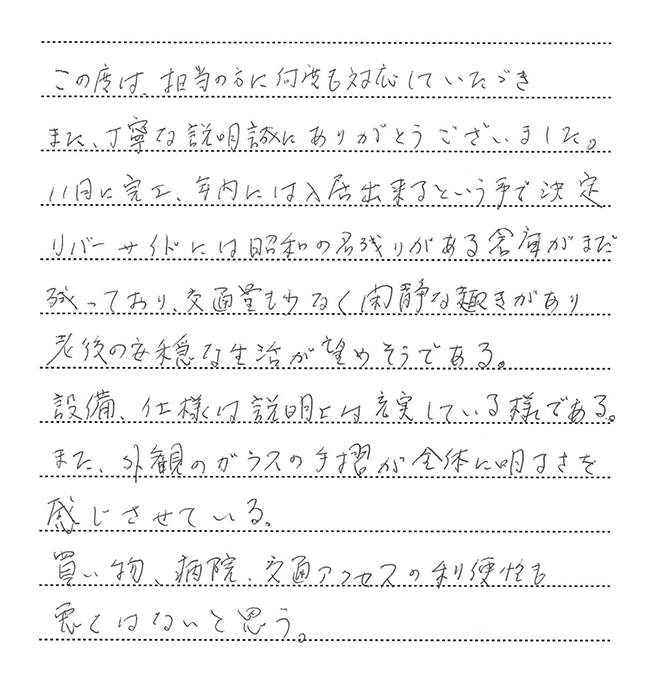 この度は、担当の方に何度も対応していただき
また、丁寧な説明誠にありがとうございました。
11月に完工、年内には入居出来るという事で決定
リバーサイドには昭和の名残りがある倉庫がまだ
残っており、交通量も少なく閑静な趣きがあり
老後の安穏な生活が望めそうである。
設備、仕様は説明上は充実している様である。
また、外観のガラスの手摺が全体に明るさを
感じさせている。
買い物、病院、交通アクセスの利便性も
悪くはないと思う。